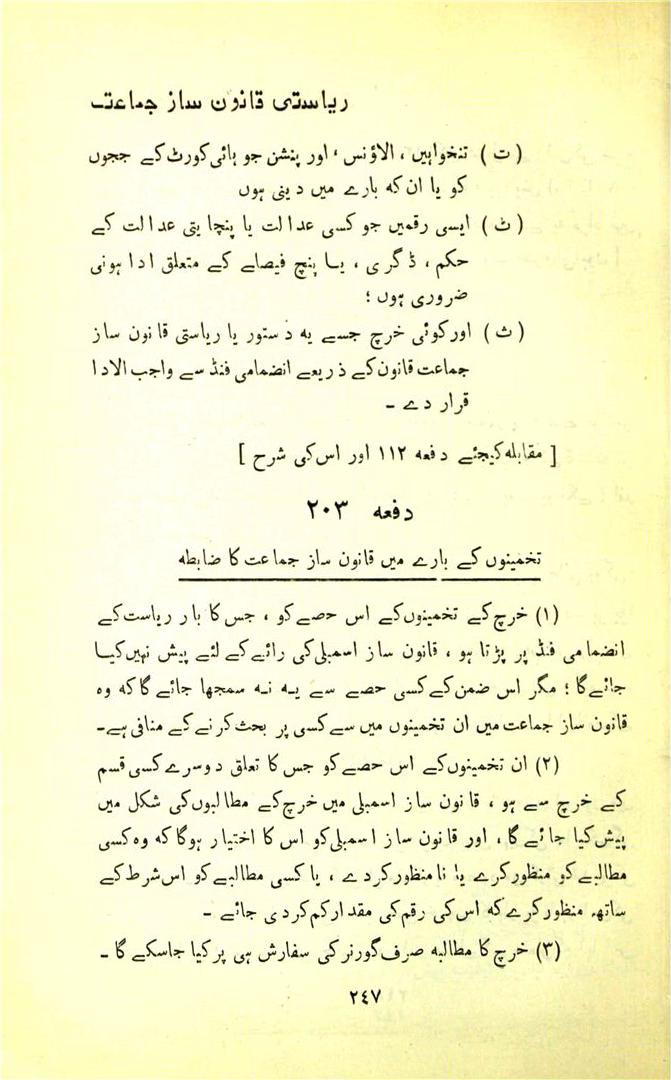 ریاستی قانون ساز جماعت
( ت ) تنخواہیں ، الاؤنس ، اور پنشن جو ہائی کورٹ کے ججوں
کو یا ان کہ بارے میں دینی ہوں
( ٹ ) ایسی رقمیں جو کسی عدالت یا پنچایتی عدالت کے
حکم ، ڈگری ، یا پنچ فیصلے کے متعلق ادا ہونی
ضروری ہوں ؛
( ث ) اور کوئی خرچ جسے یہ دستور یا ریاستی قانون ساز
جماعت قانون کے ذریعے انضمامی فنڈ سے واجب الادا
قرار دے ۔
[ مقابلہ کیجئے دفعہ ۱۱۲ اور اس کی شرح ]
دفعہ ۲۰۳
تخمینوں کے بارے میں قانون ساز جماعت کا ضابطہ
(۱) خرچ کے تخمینوں کے اس حصے کو ، جس کا بار ریاست کے
انضمامی فنڈ پر پڑتا ہو ، قانون ساز اسمبلی کی رائے کے لئے پیش نہیں کیا
جائے گا ؛ مگر اس ضمن کے کسی حصے سے یہ نہ سمجھا جائے گا کہ وہ
قانون ساز جماعت میں ان تخمینوں میں سے کسی پر بحث کرنے کے منافی ہے۔
(۲) ان تخمینوں کے اس حصے کو جس کا تعلق دوسرے کسی قسم
کے خرچ سے ہو ، قانون ساز اسمبلی میں خرچ کے مطالبوں کی شکل میں
پیش کیا جائے گا ، اور قانون ساز اسمبلی کو اس کا اختیار ہوگا کہ وہ کسی
مطالبے کو منظور کرے یا نا منظور کر دے ، یا کسی مطالبے کو اس شرط کے
ساتھ منظور کرے کہ اس کی رقم کی مقدار کم کر دی جائے ۔
(۳) خرچ کا مطالبہ صرف گورنر کی سفارش ہی پر کیا جاسکے گا ۔
۲۴۷